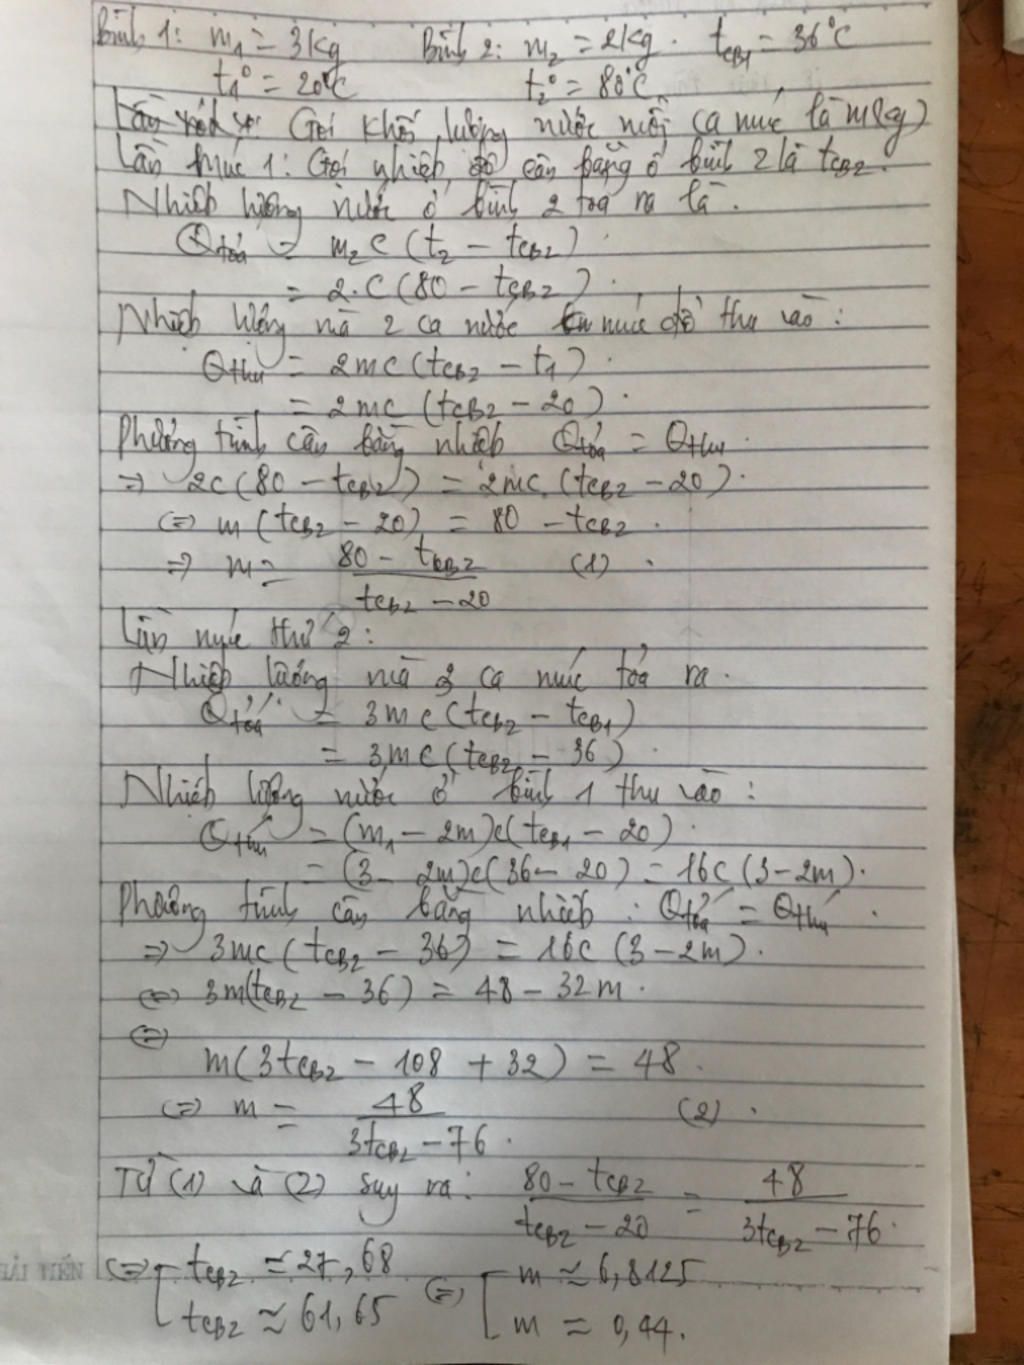 Bình 1: m₁ = 3kg Bình 2: m₂ = 2kg. tcB1 = 36°C
t₁° = 20°C t₂° = 80°C
Gọi khối lượng nước mỗi ca múc là m(kg)
Lần múc 1: Gọi nhiệt độ cân bằng ở bình 2 là tcB2.
Nhiệt lượng nước ở bình 2 toả ra là.
Qtoả = m₂c(t₂ - tcB2).
= 2.c(80 - tcB2).
Nhiệt lượng mà 2 ca nước múc đổ thu vào:
Qthu = 2mc(tcB2 - t1).
= 2mc (tcB2 - 20).
Phương trình cân bằng nhiệt Qtoả = Qthu.
=> 2c(80 - tcB2) = 2mc.(tcB2 - 20).
<=> m(tcB2 - 20) = 80 - tcB2.
=> m = (80 - tcB2)/(tcB2 - 20) (1).
Lần múc thứ 2:
Nhiệt lượng mà 3 ca múc tỏa ra.
Qtoả' = 3mc(tcB2 - tcB1)
= 3mc(tcB2 - 36).
Nhiệt lượng nước ở bình 1 thu vào:
Qthu' = (m₁ - 2m)c(tcB1 - 20).
= (3 - 2m)c(36 - 20) = 16c(3-2m).
Phương trình cân bằng nhiệt: Qtoả' = Qthu'.
=> 3mc(tcB2 - 36) = 16c(3-2m).
<=> 3m(tcB2 - 36) = 48 - 32m.
<=>
m(3tcB2 - 108 + 32) = 48.
<=> m = 48/(3tcB2 - 76). (2).
Từ (1) và (2) suy ra: (80 - tcB2)/(tcB2 - 20) = 48/(3tcB2 - 76).
<=> [ tcB2 ≈ 27,68 <=> [ m ≈ 6,8125
tcB2 ≈ 61,65 m = 0,44.